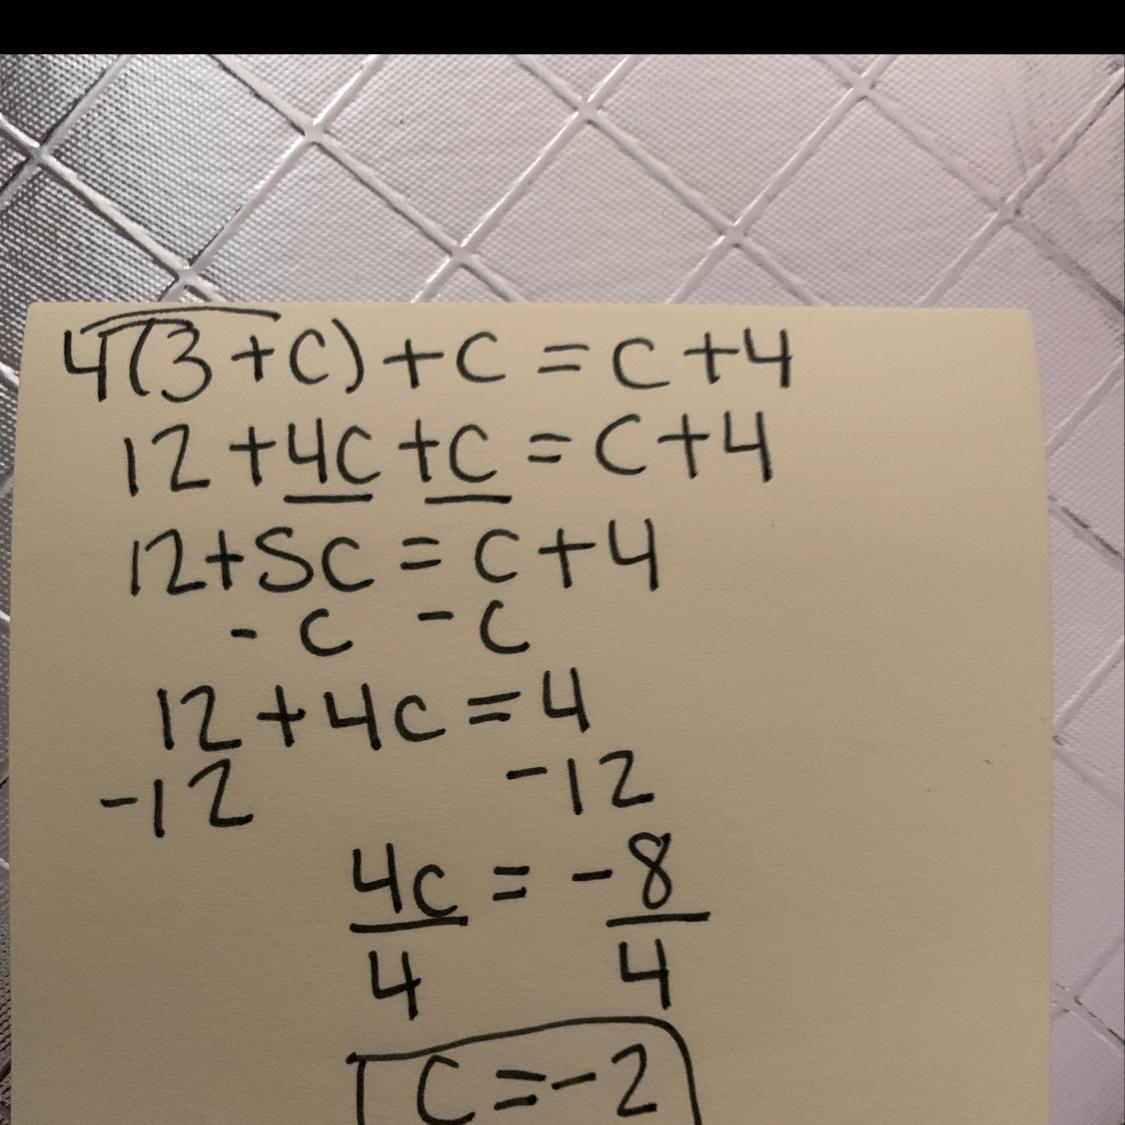 4(3+c)+c=c+4
12+4c+c=c+4
12+5c=c+4
-c -c
12+4c=4
-12 -12
4c = -8
4 4
c=-2